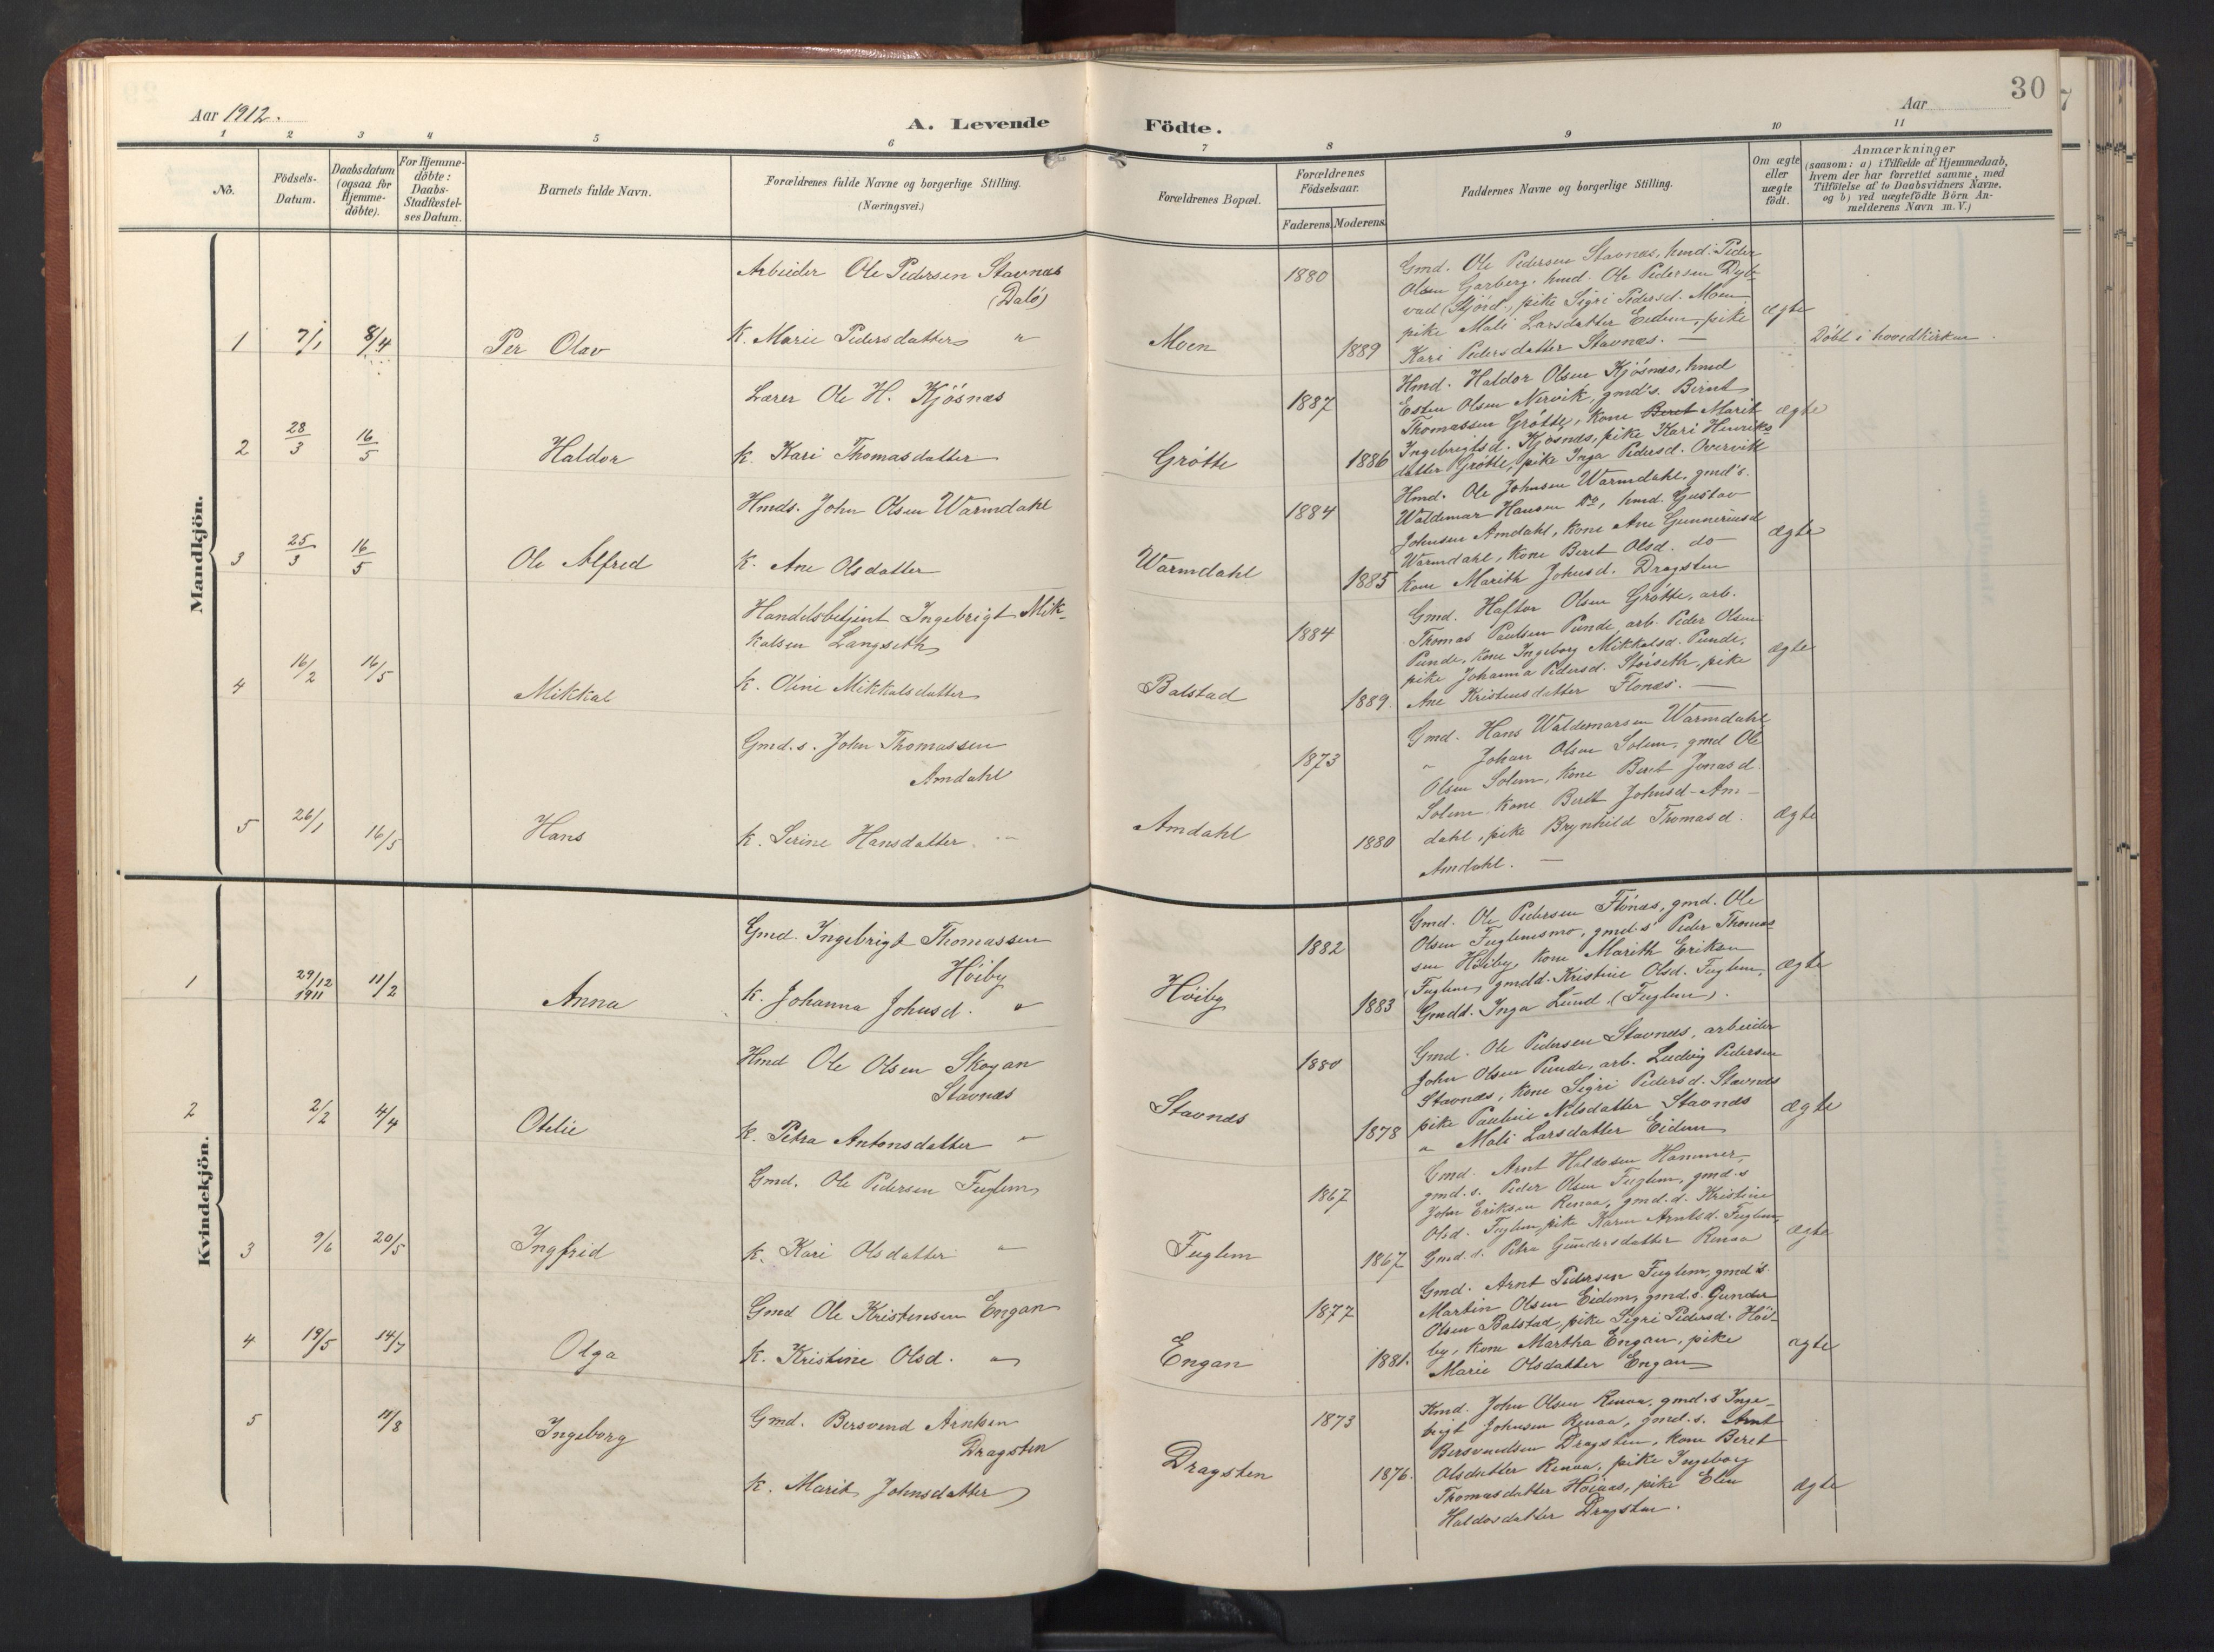 30
Aar 1912.
A. Levende Födte.
Aar
1 2 3 4 5 6 7 8 9 10 11
No.
Födsels-Datum.
Daabsdatum (ogsaa for Hjemme-döbte).
For Hjemme-döbte: Daabs-Stadfæstel-ses Datum.
Barnets fulde Navn.
Forældrenes fulde Navne og borgerlige Stilling.
(Næringsvei.)
Forældrenes Bopæl.
Forældrenes Födselsaar.
Faderens. Moderens.
Faddernes Navne og borgerlige Stilling.
Om ægte eller uægte födt.
Anmærkninger
(saasom: a) i Tilfælde af Hjemmedaab, hvem der har forrettet samme, med Tilföielse af to Daabsvidners Navne, og b) ved uægtefödte Börn An-melderens Navn m. V.)
Mandkjön.
Arbeider Ole Pedersen Stavnæs
(Dalö)
1 7/1 8/4 Per Olav
K. Marie Pedersdatter "
Moen
1880
1889
Gmd. Ole Pedersen Stavnæs, hmd. Peder
Olsen Garberg, hmd. Ole Pedersen Dyb-
vad (Stjörd.), pike Sigri Pedersd. Moen
pike Mali Larsdatter Eidem, pike
Kari Pedersdatter Stavnæs. —
ægte
Döbt i hovedkirken.
Lærer Ole H. Kjösnæs
2 28/3 16/5 Haldor
K. Kari Thomasdatter
Grötte
1887
1886
Hmd. Haldor Olsen Kjösnæs, hmd
Esten Olsen Nervik, gmd's. Bernt
Thomassen Grötte, kone Beret Marit
Ingebrigtsd. Kjösnæs, pike Kari Henriks-
datter Grötte, pike Inga Pedersd. Overvik
ægte
Hmds. John Olsen Warmdahl
3 25/3 16/5 Ole Alfred
K. Ane Olsdatter
Warmdahl
1884
1885
Hmd. Ole Johnsen Warmdahl, gmd's.
Waldemar Hansen Do, hmd. Gustav
Johnsen Amdahl, kone Ane Gunneriusd
Warmdahl, kone Beret Olsd. do
kone Marith Johnsd. Dragsten
ægte
Handelsbetjent Ingebrigt Mik-
kalsen Langseth
4 16/2 16/5 Mikkal
K. Oline Mikkalsdatter
Balstad
1884
1889.
Gmd. Haftor Olsen Grötte, arb.
Thomas Paulsen Punde, arb. Peder Olsen
Punde, kone Ingeborg Mikkalsd. Punde,
pike Johanna Pedersd. Störseth, pike
Ane Kristensdatter Flönæs. —
ægte
Gmd.s. John Thomassen
Amdahl
5 26/1 16/5 Hans
K. Serine Hansdatter. "
Amdahl
1873
1880
Gmd. Hans Waldemarsen Warmdahl
" Johan Olsen Solem, gmd Ole
Olsen Solem, kone Beret Jonasd.
Solem kone Beret Johnsd- Am-
dahl, pike Brynhild Thomasd.
Amdahl. —
ægte
Kvindekjön.
Gmd. Ingebrigt Thomassen
Höiby
1 29/12 1911 11/2 Anna
K. Johanna Johnsd. "
Höiby
1882
1883
Gmd. Ole Pedersen Flönæs, gmd. Ole
Olsen Fuglemsmo, gmd.s Peder Thomas-
sen Höiby, kone Marith Eriksen
Fuglem, gmdd. Kristine Olsd. Fuglem,
Gmdd. Inga Lund (Fuglem).
ægte
Hmd Ole Olsen Skogan
Stavnæs
2 2/2 4/4 Otelie
K. Petra Antonsdatter "
Stavnæs
1880
1878
Gmd. Ole Pedersen Stavnæs, arbeider
John Olsen Punde, arb. Ludvig Pedersen
Stavnæs, kone Sigri Pedersd. Stavnæs
pike Pauline Nilsdatter Stavnæs
" Mali Larsdatter Eidem
ægte
Gmd. Ole Pedersen Fuglem
3 9/6 20/5 Ingfrid
K. Kari Olsdatter "
Fuglem
1867
1867
Gmd. Arnt Haldosen Hammer,
gmd.s. Peder Olsen Fuglem, gmd.s
John Eriksen Renaa, gmd.d. Kristine
Olsd. Fuglem, pike Karen Arntsd. Fuglem,
Gmd.d. Petra Gundersdatter Renaa
ægte
Gmd Ole Kristensen Engan
4 19/5 14/7 Olga
K. Kristine Olsd. "
Engan
1877
1881.
Gmd. Arnt Pedersen Fuglem, gmd's.
Martin Olsen Eidem, gmd.s. Gunder
Olsen Balstad, pike Sigri Pedersd. Höi-
by, kone Martha Engan, pike
Marie Olsdatter Engan
ægte
Gmd. Bersvend Arntsen
Dragsten
5 11/8 Ingeborg
K. Marit Johnsdatter
Dragsten
1873
1876.
Hmd. John Olsen Renaa, gmd.s Inge-
brigt Johnsen Renaa, gmd.s. Arnt
Bersvendsen Dragsten, kone Beret
Olsdatter Renaa, pike Ingeborg
Thomasdatter Höiaas, pike Elen
Haldosdatter Dragsten.
ægte